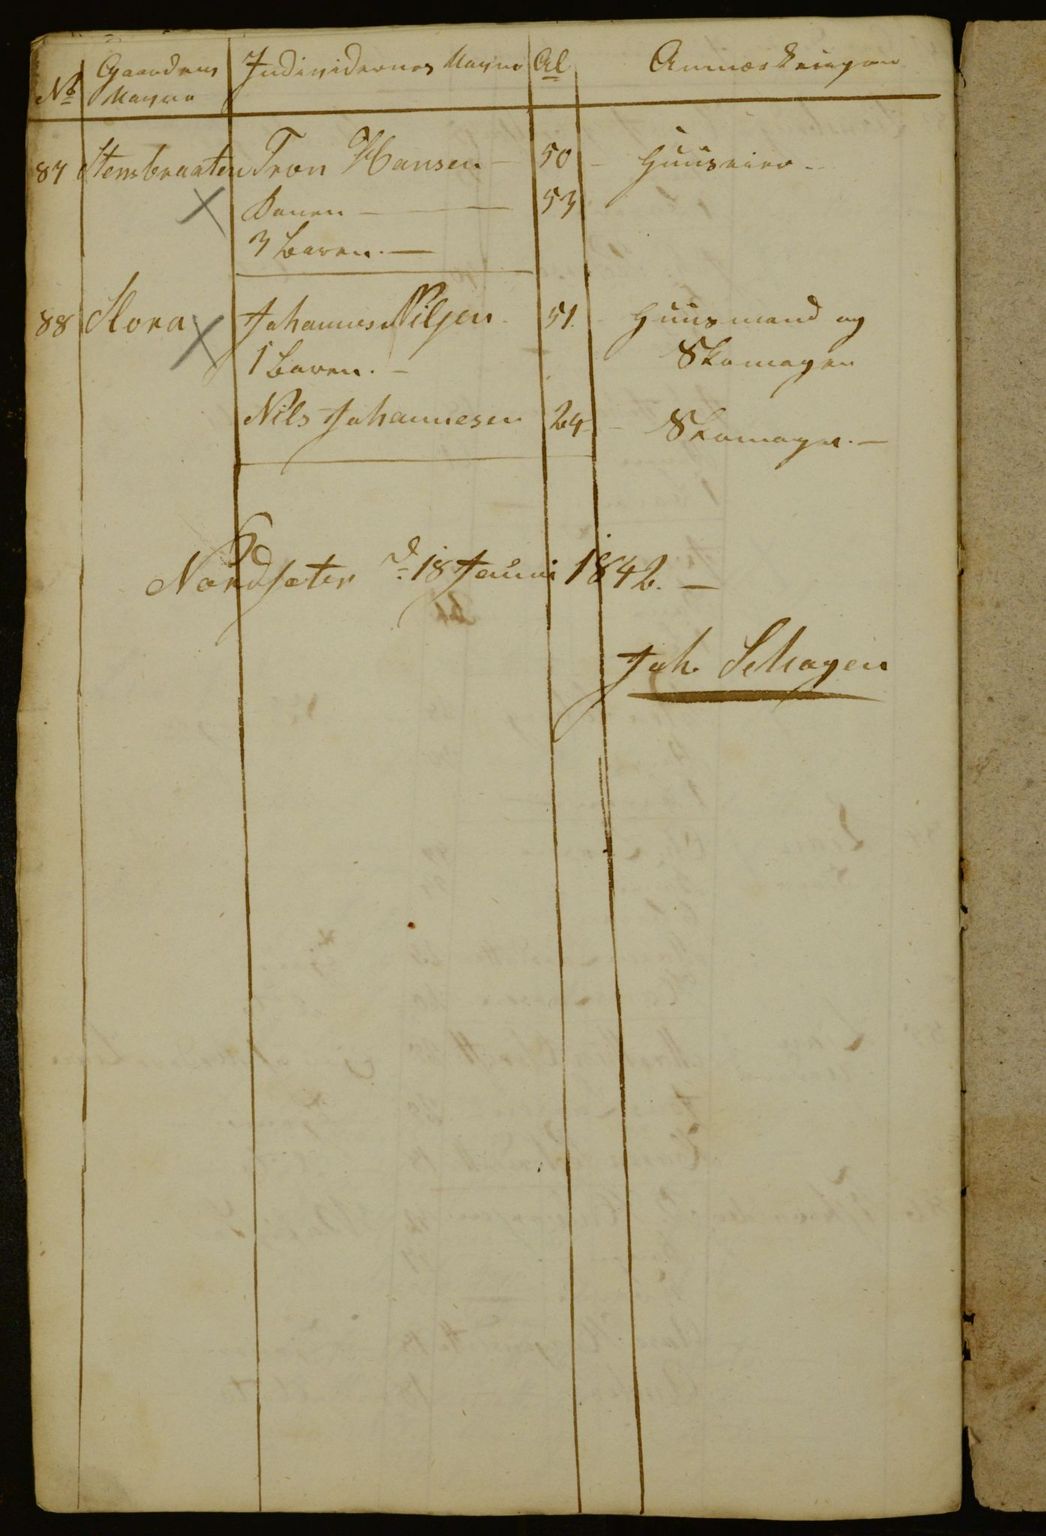 No Gaardens Navne Individernes Navne Al Anmærkninger
87 Stensbraaten Tron Hansen - 50 - Huuseier -
Konen - 53
3 Børn. -
88 Flora Johannes Nilsen 51. - Huusmand og
1 Barn. - Skomager
Nils Johannesen 24 - Skomager. -
Nordsæter d. 18 Januni 1842. -
Joh. Schagen